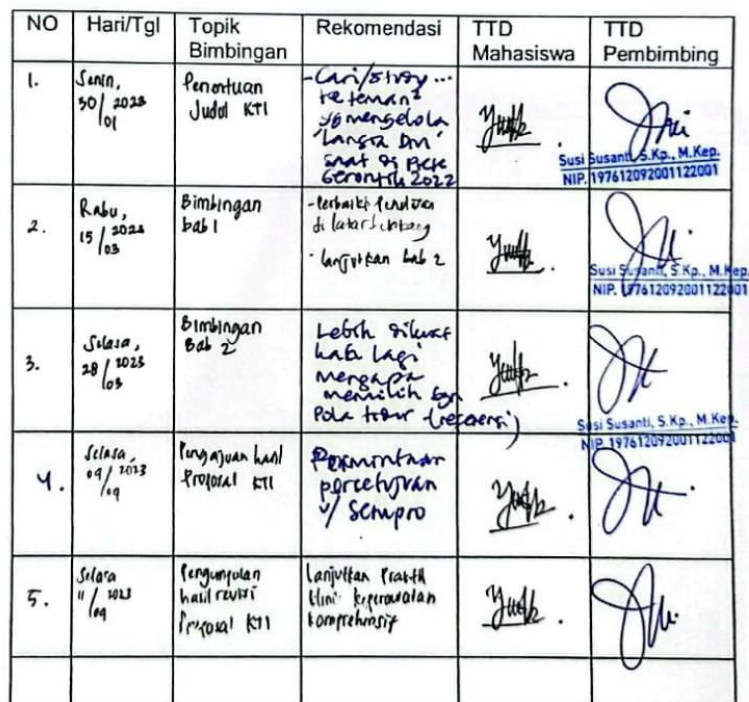 NO Hari/Tgl Topik Bimbingan Rekomendasi TTD Mahasiswa TTD Pembimbing
1.
Senin,
30/ 2023
01
Penentuan
Judul KTI
- Cari/
teman²
yg mengelola
Lansia DM
saat di
Gerontik 2022
Susi Susanti, S.Kp., M.Kep.
NIP. 197612092001122001
2.
Rabu,
15/ 2023
03
Bimbingan
bab 1
- Perbaiki
di latar belakang
- lanjutkan bab 2
Susi Susanti, S.Kp., M.Kep.
NIP. 197612092001122001
3.
Selasa,
28/ 2023
03
Bimbingan
Bab 2
Lebih
lagi
mengapa
memilih
Pola tidur
Susi Susanti, S.Kp., M.Kep.
NIP. 197612092001122001
4.
Selasa,
09/ 2023
Pengajuan hasil
Proposal KTI
Permintaan
persetujuan
u/ Sempro
5.
Selasa
11/ 2023
Pengumpulan
hasil revisi
Proposal KTI
Lanjutkan Praktik
klinik keperawatan
komprehensif